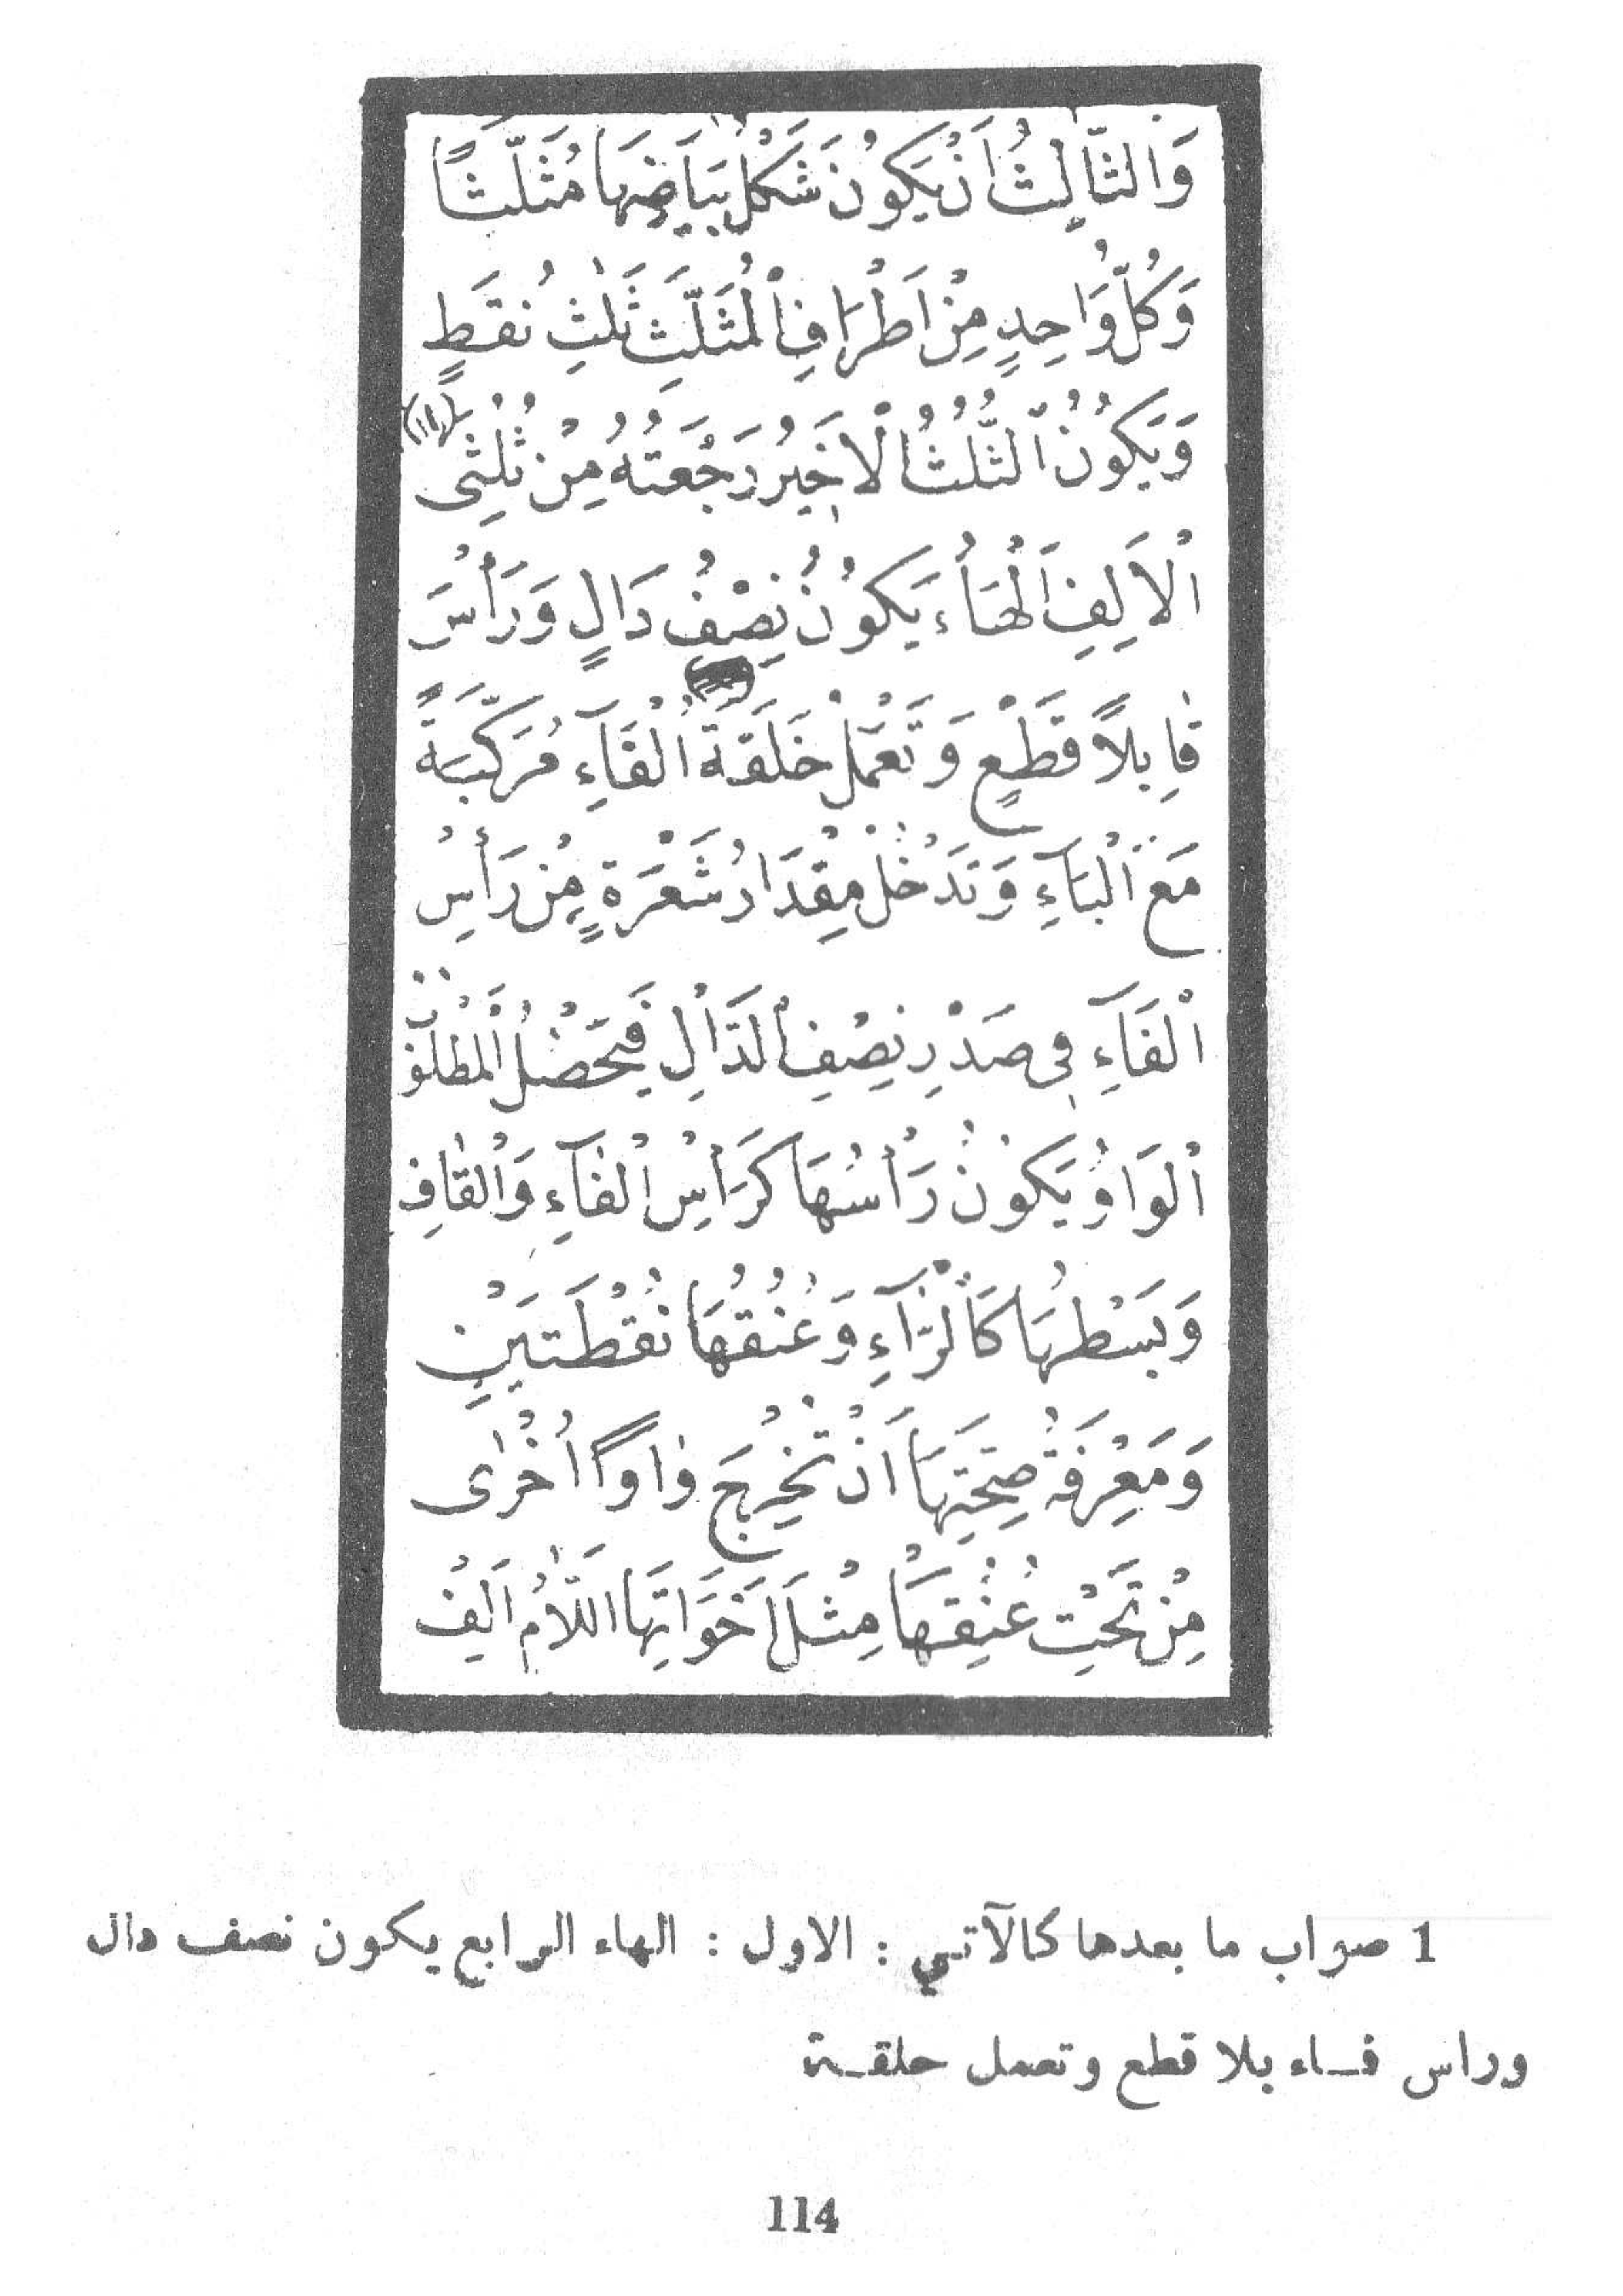 وَالثَّالِثُ اَنْ يَكُونَ شَكْلُ بَيَاضِهَا مُثَلَّثًا
وَكُلُّ وَاحِدٍ مِنْ اَطْرَافِ الْمُثَلَّثِ ثَلٰثِ نُقَطٍ
وَيَكُونُ الثُّلُثُ الْاَخِيرُ رَجْعَتُهُ مِنْ ثُلُثَىِ (١)
الْاَلِفِ اَلْهَاءُ يَكُونُ نِصْفُ دَالٍ وَرَأْسَ
فٰا بِلَا قَطْعٍ وَتَعْمَلُ خَلَقَةَ الْفَآءِ مُرَكَّبَةً
مَعَ الْبَآءِ وَتَدْخُلُ مِقْدَارُ شَعْرَةٍ مِنْ رَأْسِ
الْفَآءِ فِى صَدْرِ نِصْفِ الدَّالِ فَيَحْصُلُ الْمَطْلُوبُ
اَلْوَاوُ يَكُونُ رَأْسُهَا كَرَأْسِ الْفَآءِ وَالْقٰافِ
وَبَسْطُهَا كَالرَّآءِ وَعُنُقُهَا نُقْطَتَيْنِ
وَمَعْرِفَةُ صِحَّتِهَا اَنْ تُخْرِجَ وٰاوًا اُخْرٰى
مِنْ تَحْتِ عُنُقِهَا مِثْلَ اَخَوَاتِهَا اَللَّامُ اَلِفُ
1 صواب ما بعدها كالآتي : الاول : الهاء الرابع يكون نصف دال
وراس فـاء بلا قطع وتعمل حلقـة
114